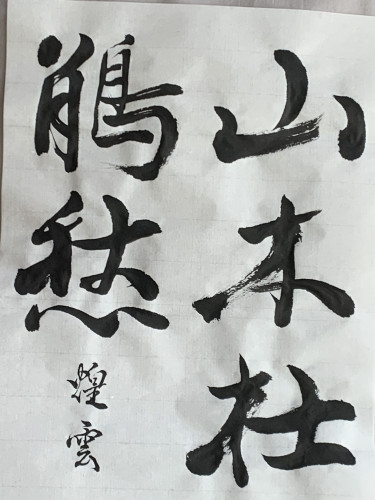 山木杜
鵑愁
煌雲